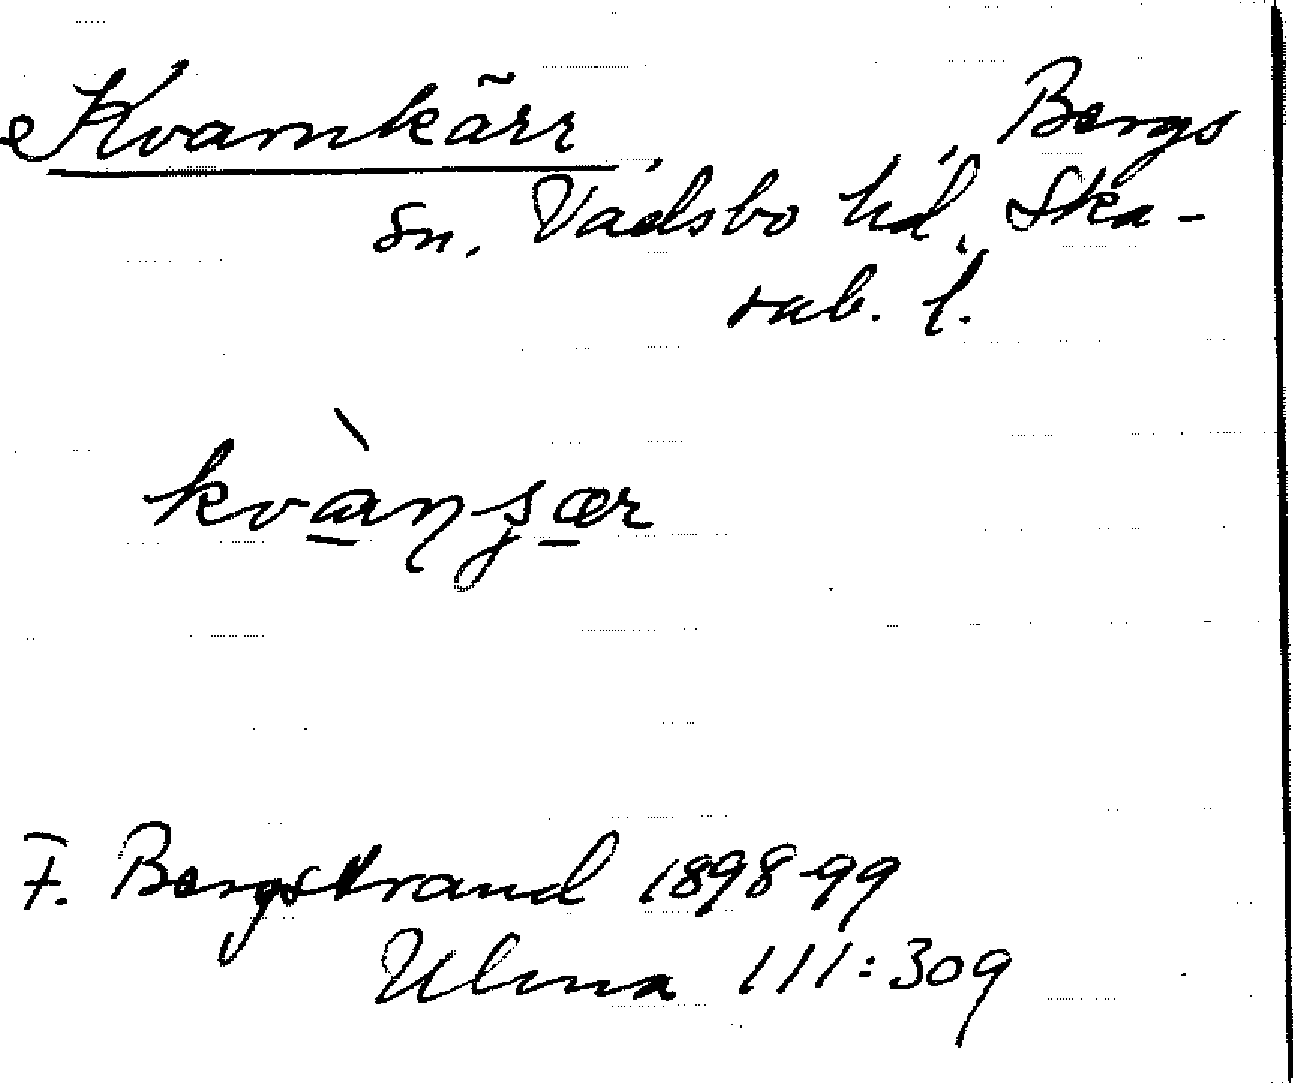 Kvarnkärr, Bergs
sn. Vadsbo hd, Ska-
rab. l.
kvànʂær
F. Bergstrand 1898-99
Ulma 111:309